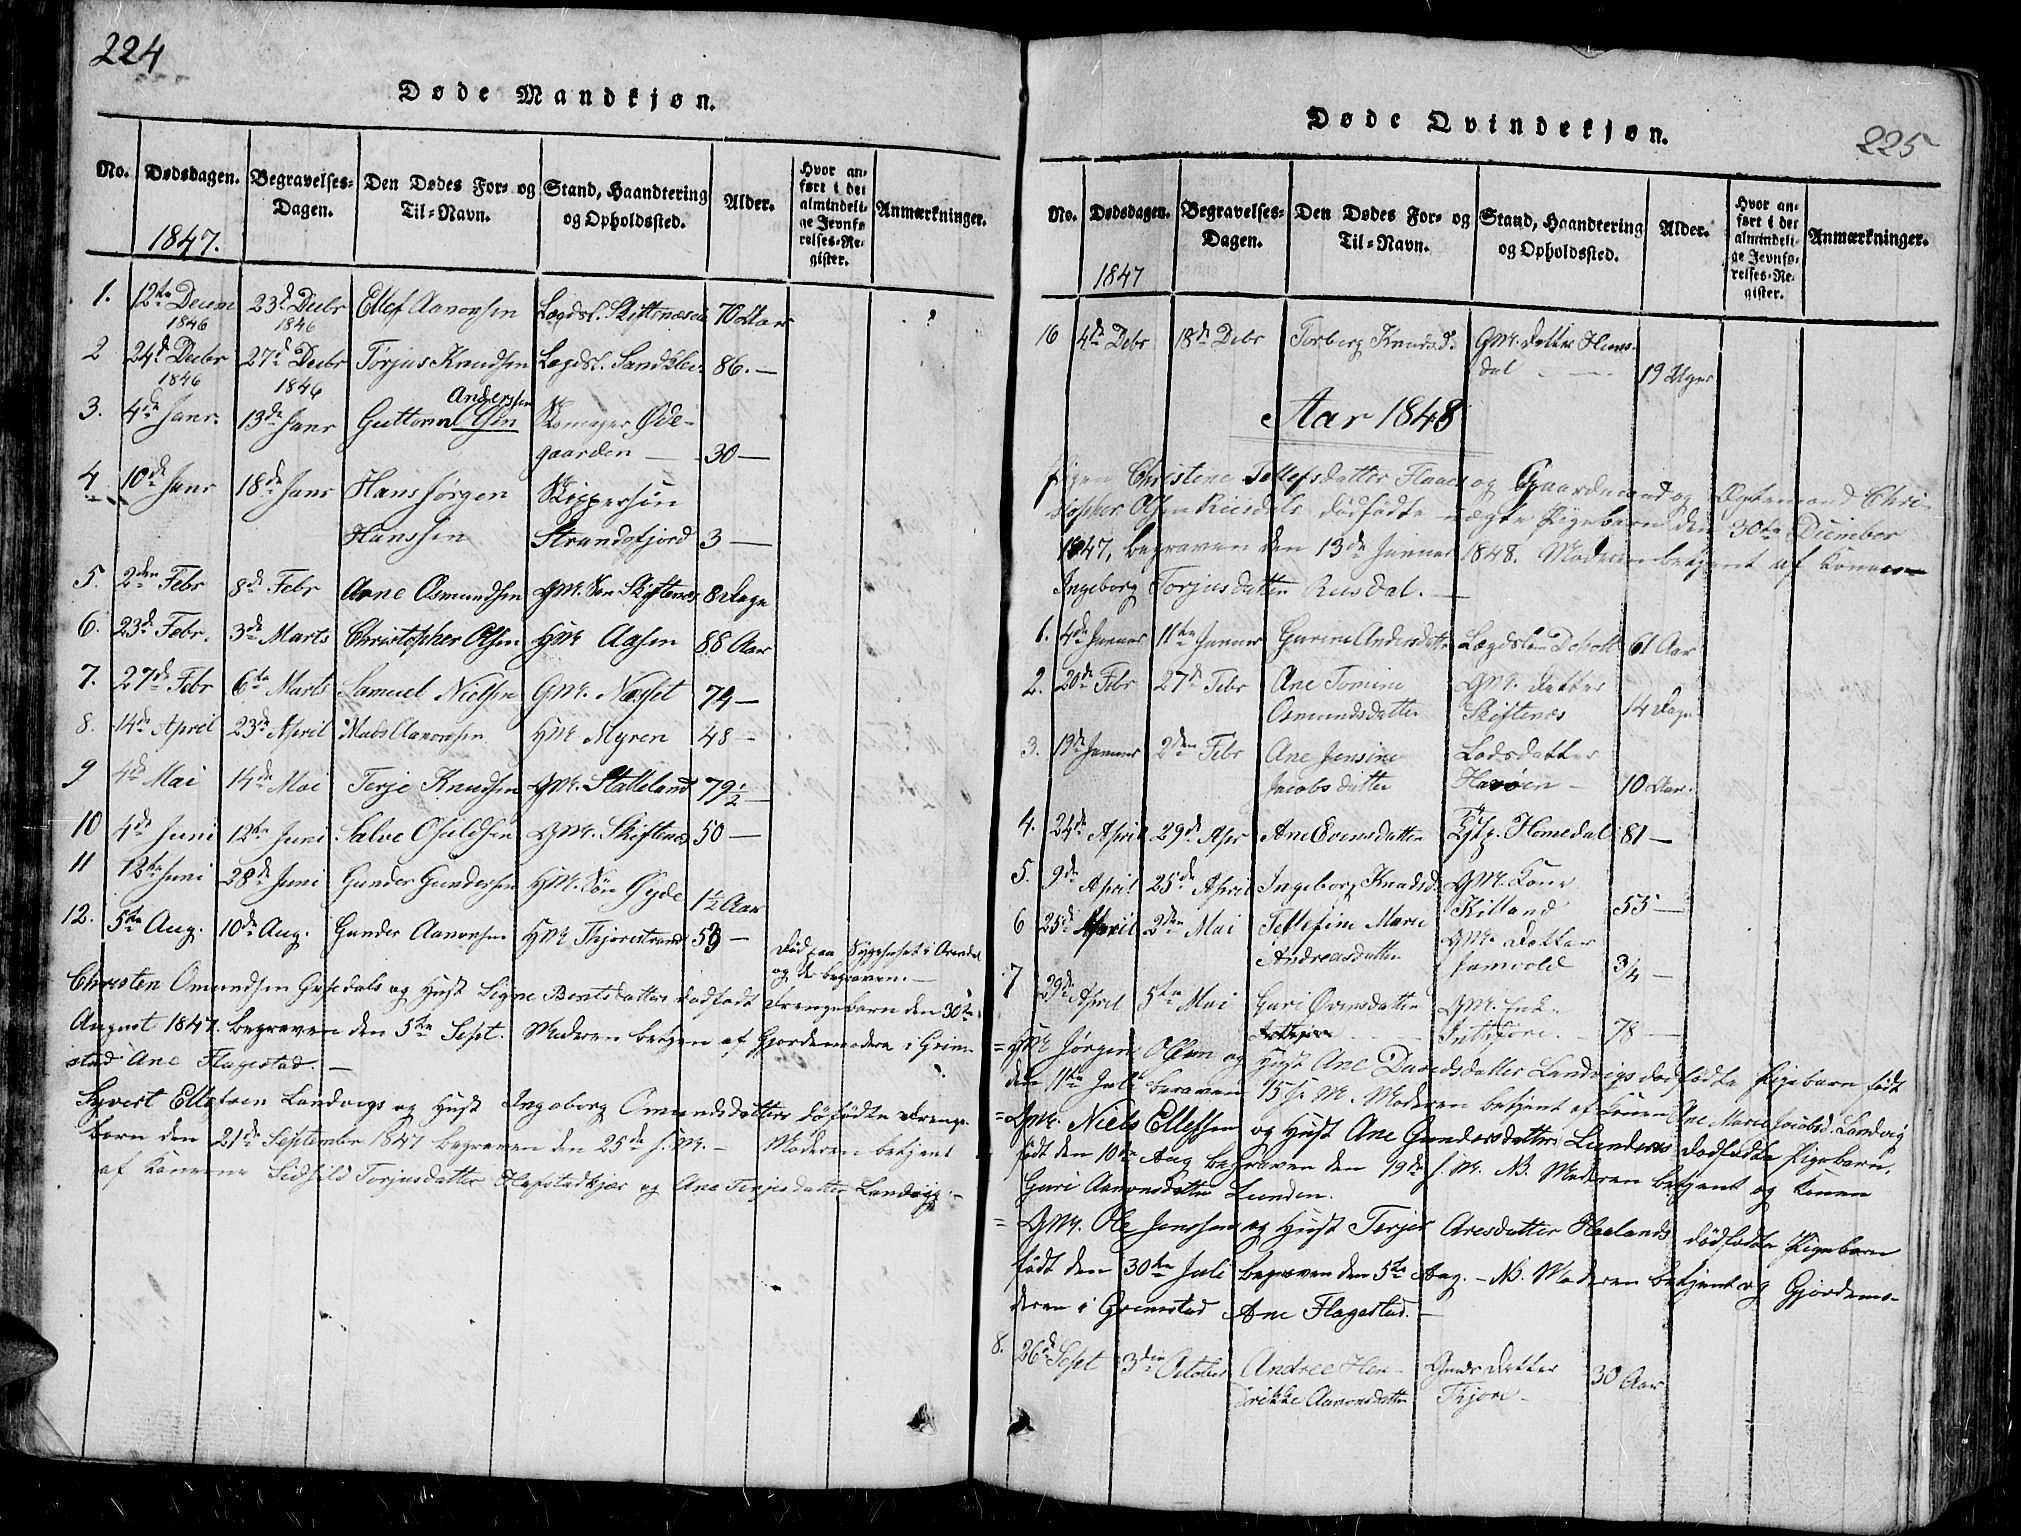 224
Døde Mandkjøn.
No. Dødsdagen. Begravelses-Dagen. Den Dødes For- og Til-Navn. Stand, Haandtering og Opholdssted. Alder. Hvor anført i det almindelige Jevnførelses-Register. Anmærkninger.
1847.
1. 12te Decem 1846 23d Decbr 1846 Ellef Aanonsen Lægdsl. 70 Aar
2 24d Decbr 1846 27d Decbr 1846 Torjus Knudsen Lægdsl. 86.—
3. 4de Janr. 13de Janr Guttorm Olsen Anderssen Skomager Øde-
gaarden — 30 —
4 10de Janr 18de Janr Hans Jørgen Skippersøn
Hanssen Strandefjord 3 —
5. 2den Febr 8de Febr Arne Osmundsen GM. Søn Skiftenes 8 Dage
6. 23d Febr. 3de Marts Christopher Olsen HM 88 Aar
7. 27de Febr 6te Marts Samuel Nielsen GM. Næsset 74 —
8. 14de April 23de April Mads Aanonsen HM. Myren 48 —
9 4de Mai 14de Mai Terje Knudsen GM. Stalleland 79½ —
10 4de Juni 12te Juni Salve Osuldsen GM. Skiftenes 50 —
11 12te Juni 28de Juni Gunder Gundersen HM. Søn 1½ Aar
12. 5te Aug. 10de Aug. Gunder Aanonsen HM 53 — Død paa Sygehuset i Arendal
og der begraven. —
Christen Omundsen og Hust Signe Bentsdatters dødfødt Drengebarn den 30te
August 1847. begraven den 5te Sept. Moderen betjen af Gjordemodern i Grim-
stad Ane Flagestad. —
Syvert Ellefsen Landvigs og Hust Ingeborg Osmundsdatters døfødte Drenge-
barn den 21de September 1847 begraven den 25de s. M. — Moderen betjent
af Konerne Torjusdatter og Ane Terjesdatter Landvig. —
225
Døde Qvindekjøn.
No. Dødsdagen. Begravelses-Dagen. Den Dødes For- og Til-Navn. Stand, Haandtering og Opholdssted. Alder. Hvor anført i det almindelige Jevnførelses-Register. Anmærkninger.
1847
16 4de Debr 18de Debr Torborg Knudsd. GM. datter Hums-
dal — 19 Uger
Aar 1848
Pigen Christene Tellefsdatter Flaaes og Gaardmand og Ægtemand Chri-
stopher Olsen Reisdals dødfødte uægte Pigebarn den 30te Decmber
1847, begraven den 13de Januar 1848. Moderen betjent af Konen
Ingeborg Torjusdatter Reisdal. —
1. 4de Januar 11te Januar Gurine Andersdatter Lægdslem 61 Aar
2. 20de Febr 27de Febr Ane Tomine GM. datter
Osmundsdatter Skiftenæs 14 Dage
3. 19de Januar 2den Febr Ane Jensine Lodsdatter
Jacobsdatter Havøen — 10 Aar.
4. 24de April 29de Apr Ane Evensdatter Homedal 81 —
5. 9de April 25de April Ingeborg Knudsd. GM. Kone
Killand 55 —
6 25de April 2den Mai Tellefine Marie GM. Datter
Andreasdatter 3/4 —
7 29de April 5te Mai Guri GM. Enke
78 —
= HM Jørgen Olsen og Hust Ane Davidsdatter Landvigs dødfødte Pigebarn født
den 11te Juli beraven 15 s. M. Moderen betjent af Konen Ane Marie Jacobsd. Landvig
= GM. Niels Ellefsen og Hust Ane Gundersdatters Lundens dødfødte Pigebarn,
født den 10de Aug begraven den 19de s. M. NB. Moderen betjent og Konen
Guri Aanonsdatter Lunden.
= GM. Ole Jenssen og Hust Terjer Aresdatter dødfødte Pigebarn
født den 30te Juli begraven den 5te Aug. — NB. Moderen betjent og Gjordemo-
deren i Grimstad Ane Flagestad. —
8. 26de Sept 3die October Andree Hen- Datter
drikke Aanonsdatter Thjore — 30 Aar